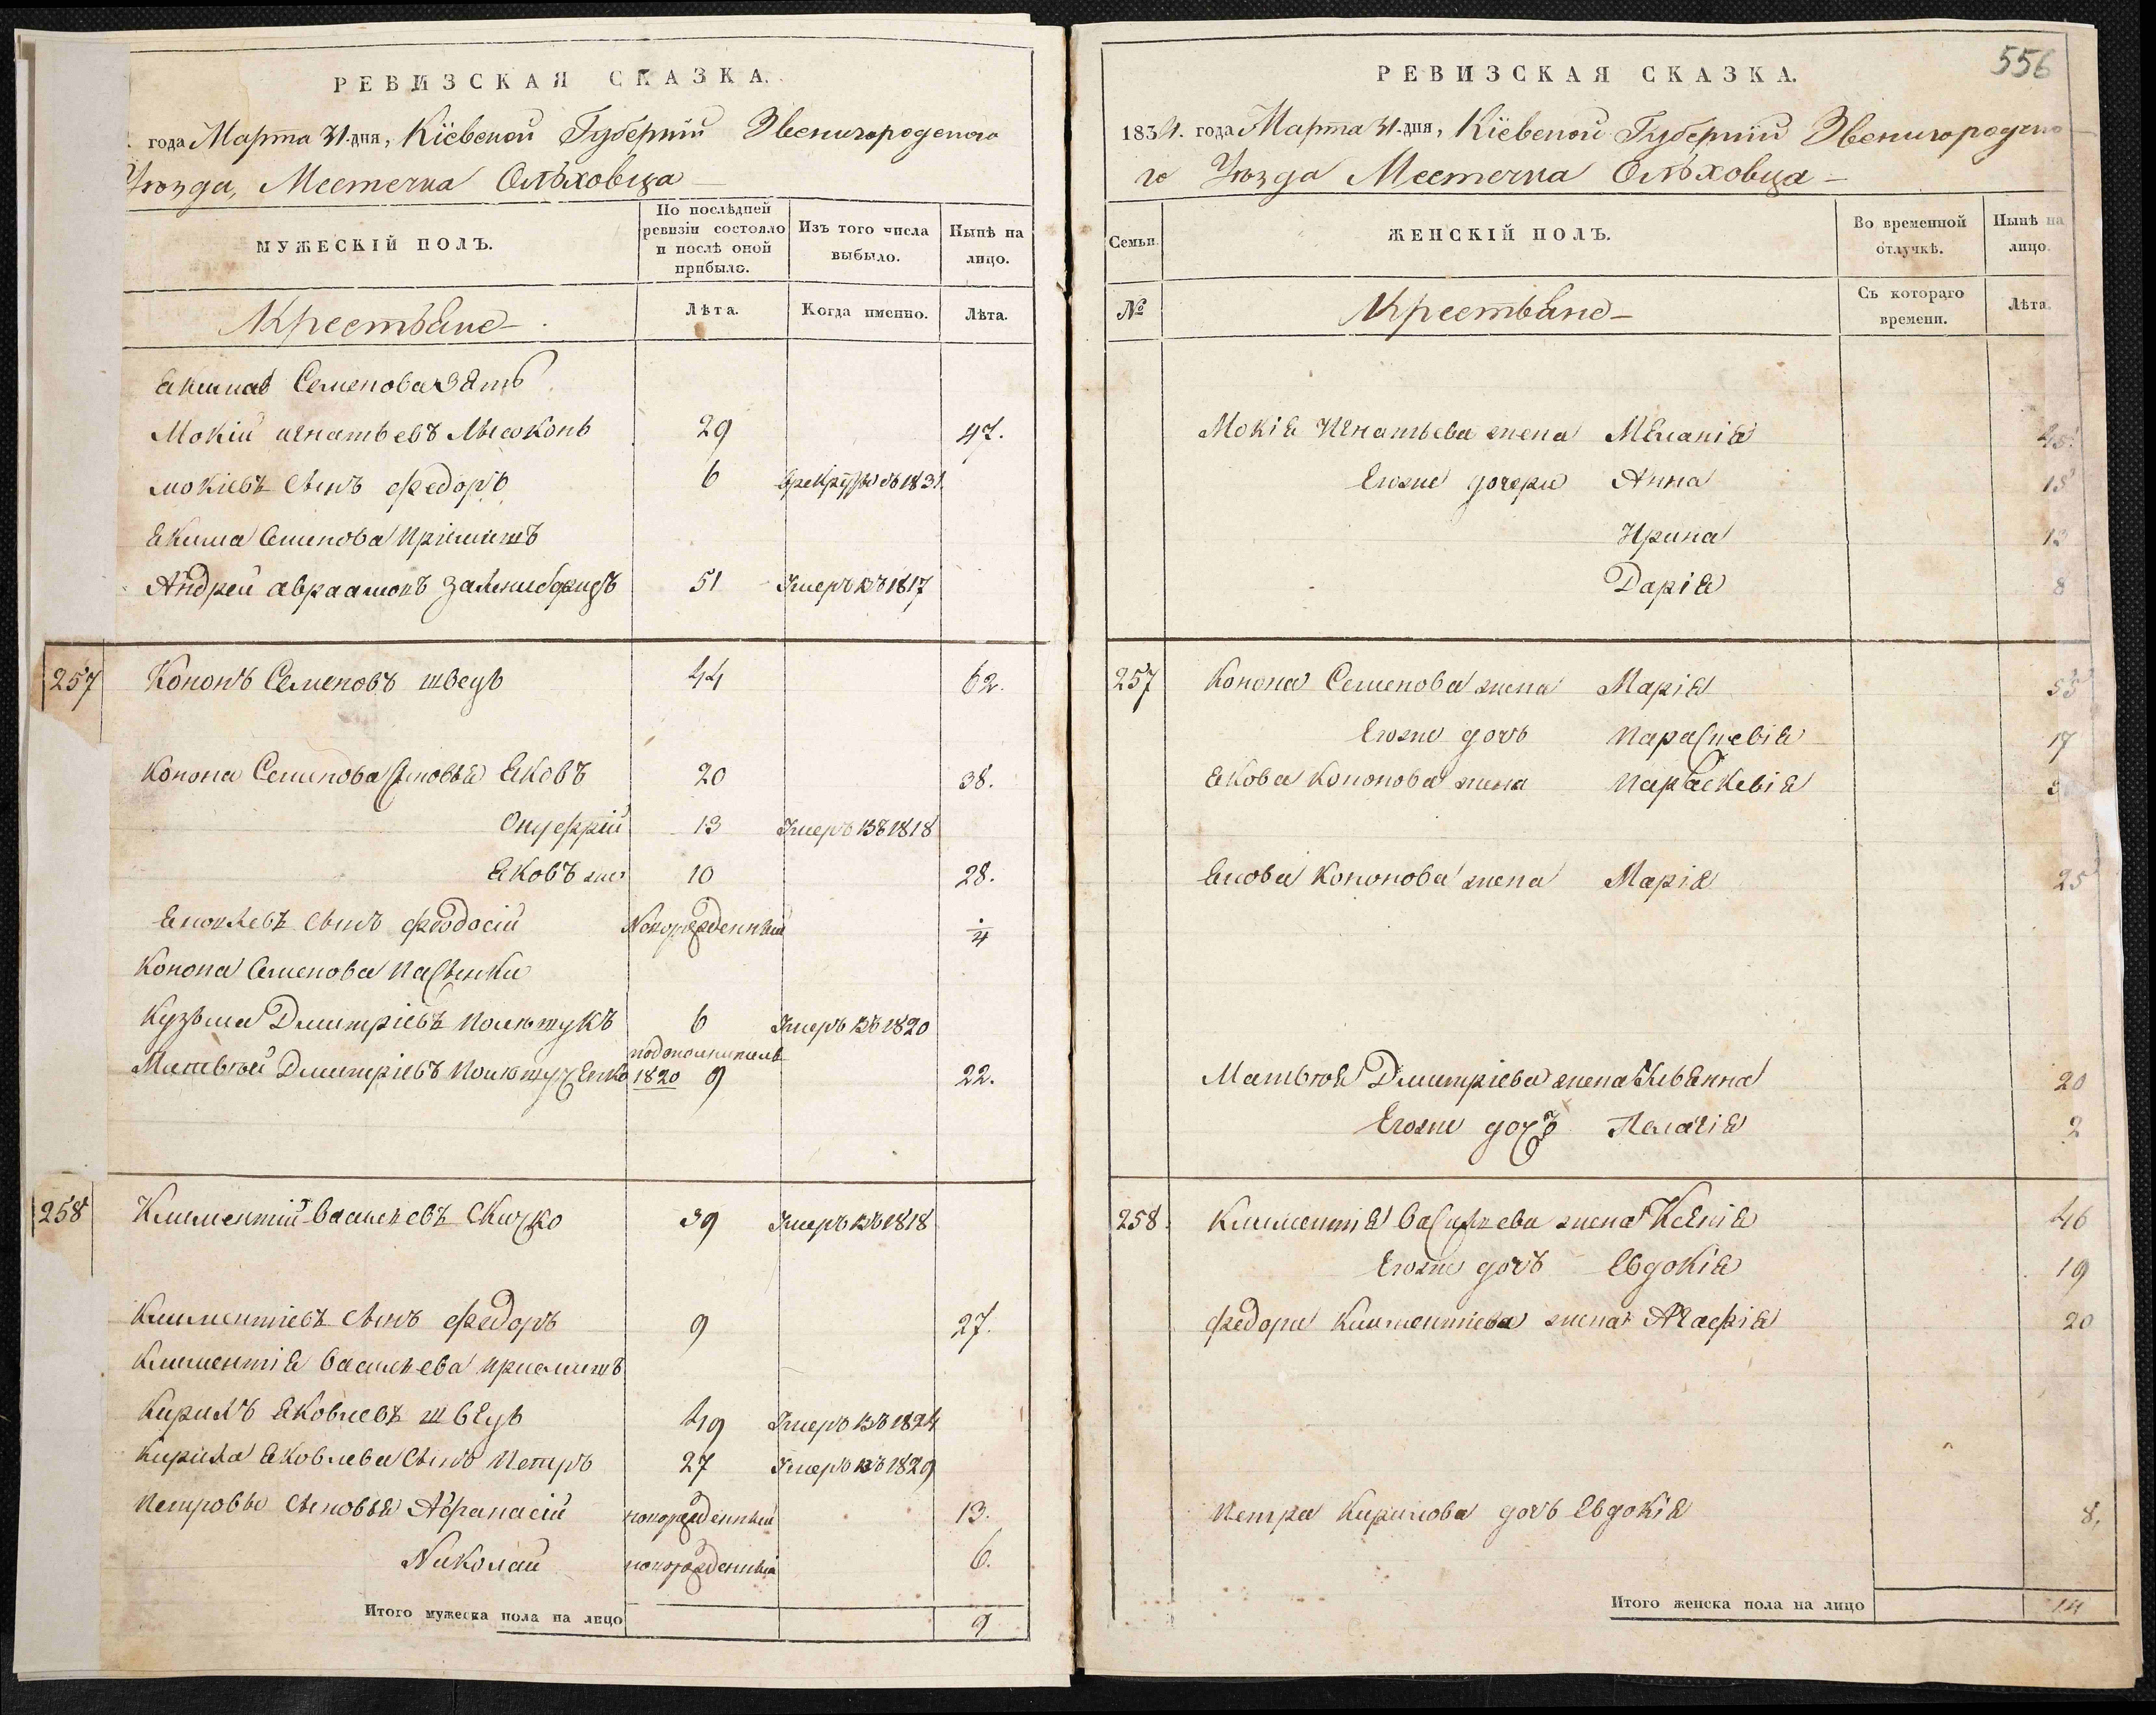 РЕВИЗСКАЯ СКАЗКА.
года Марта 31. дня, Кіевской Губерніи Звенигородского
Уѣзда, Местечка Ольховца
МУЖЕСКІЙ ПОЛЪ.
По послѣдней ревизіи состояло и послѣ оной прибыло.
Изъ того числа выбыло.
Нынѣ на лицо.
Крестьяне
Лѣта.
Когда именно.
Лѣта.
Якима Семенова зять
Мокій Игнатьевъ 29 47.
Мокіевъ сынъ Федоръ 6 в рекруты въ 1831
Якима Семенова приймитъ
Андрей Авраамовъ 51 Умеръ въ 1817
257 Кононъ Семеновъ швецъ 44 62.
Конона Семенова сыновья Яковъ 20 38.
Онуфрій 13 Умеръ въ 1818
Яковъ же 10 28.
Яковлевъ сынъ Феодосій новорожденный
Конона Семенова пасынки
Кузьма Дмитріевъ 6 Умеръ въ 1820
Матвѣй Дмитріевъ 1820 9 22.
258 Климентій Васильевъ 39 Умеръ въ 1818
Климентіевъ сынъ Федоръ 9 27.
Климентія Васильева приймитъ
Кирилъ Яковлевъ швецъ 49 Умеръ въ 1824
Кирила Яковлева сынъ Петръ 27 Умеръ въ 1829
Петровы сыновья Афанасій новорожденный 13.
Николай новорожденный 6.
Итого мужеска пола на лицо 9
556
РЕВИЗСКАЯ СКАЗКА.
1834. года Марта 31. дня, Кіевской Губерніи Звенигородско
го Уѣзда Местечка Ольховца
Семьи.
ЖЕНСКІЙ ПОЛЪ.
Во временной отлучкѣ.
Нынѣ на лицо.
№
Крестьяне
Съ котораго времени.
Лѣта.
Мокія Игнатьева жена Меланія 45.
Егоже дочери Анна 18
Ирина 13
Дарія 8
257 Конона Семенова жена Марія 55
Егоже дочь Параскевія 17
Якова Кононова жена Параскевія
Якова Кононова жена Марія 25
Матвѣя Дмитріева жена 20
Егоже дочь Пелагія 2
258. Климентія Васильева жена Ксенія 46
Егоже дочь Евдокія 19
Федора Климентіева жена Агафія 20
Петра Кирилова дочь Евдокія 8.
Итого женска пола на лицо 14